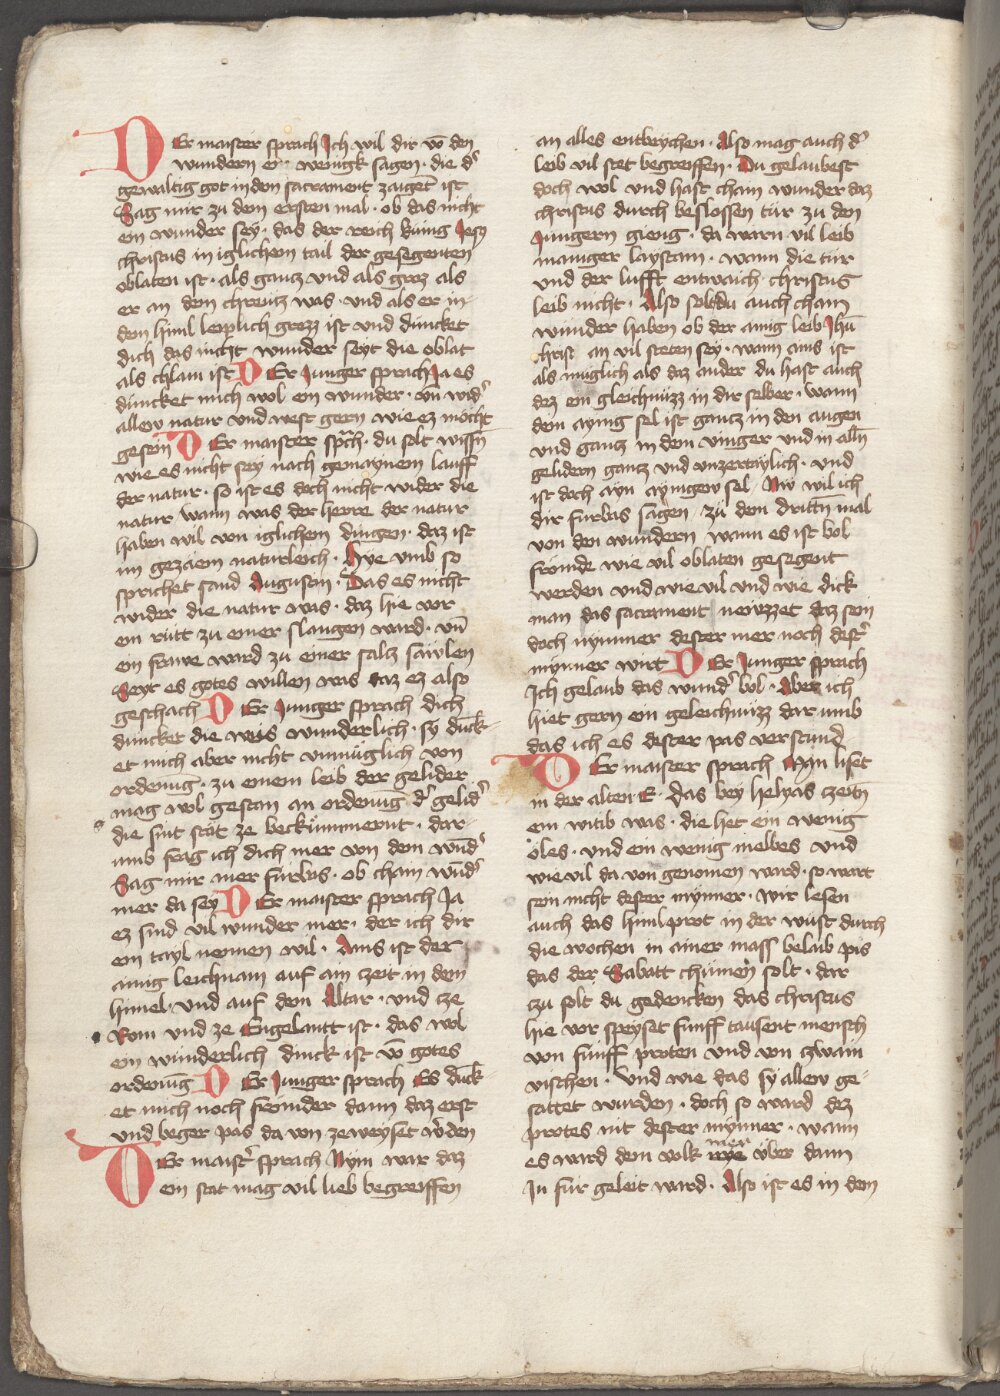 DEr maister sprach Ich wil dir vō den
wundern ein wenigk sagen · die dʼ
gewaltig got in den sacrament zaiget ist
Sag mir zu dem ersten mal · ob das nicht
ein wunder sey · das der reich kunig Jesꝫ
christus in iglichem tail der gesegenten
oblaten ist · als gancz vnd als groz als
er an dem chreutz was · vnd als er in
dem himl leiplich grozz ist vnd duncket
dich das nicht wunder seyt die oblat
als chlain ist DEr Junger sprach Ja es
duncket mich wol ein wunder · vnd widʼ
allew natur vnd west gern wie ez mocht
gesein DEr maister sprach · du solt wissn̄
wie es nicht sey nach gemaynem lauff
der natur · so ist es doch nicht wider die
natur wann was der herre der natur
haben wil von iglichem dingen · daz ist
im gezaem naturleich · Hye vmb so
sprichet sand Augustin · Das es nicht
wider die natur was · daz hie vor
ein rutt zu einer slangen ward · vn̄
ein frawe ward zu einer salcz sawlen
Seyt es gotes willen was daz ez also
geschach DEr Junger sprach dich
duncket die weis wunderlich · sy dunk-
et mich aber nicht vnmuglich von
ordenūg · zu einem leib der gelider
mag wol gestan an ordenūg dʼ gelidʼ
die sint stät ze bechummernt · dar-
umb frag ich dich mer von dem wūdʼ
Sag mir mer furbas · ob chain wūdʼ
mer da sey DEr maister sprach Ja
ez sind vil wunder mer · der ich dir
ein tayl nennen wil · Ains ist der
ainig leichnam auf ain czeit in dem
himel · vnd auf dem Altar · vnd cze
Rom vnd ze Engelantt ist · das wol
ein wunderlich dinck ist vō gotes
ordenūg DEr Junger sprach Es dunk-
et mich noch fromder dann daz erst
vnd beger pas da von zeweyset wʼden
DEr maistʼ sprach Nym war daz
ein stat mag vil lieb begreiffen
an alles entweychen · Also mag auch dʼ
leib vil stet begreiffen · Du gelaubest
doch wol vnd hast chain wunder daz
christus durch beslossen tür zu den
Jungern gieng · da warn vil leib
maniger laystam · wann die tur
vnd der lufft entwaich christus
leib nicht · Also soltdu auch chain
wunder haben ob der ainig leib Jhū
christ an vil steten sey · wann ains ist
als muglich als daz ander du hast auch
dez ein gleichnuzz in dir selber · wann
dein aynig sel ist gancz in den augen
vnd gancz in dem vinger vnd in alln̄
gelidern gancz vnd vnzertaylich · vnd
ist doch ayn aynigew sel Nw wil ich
dir furbas sagen · zu dem dritn̄ mal
von den wundern wann es ist wol
fromde wie vil oblaten gesegent
werden vnd wie vil vnd wie dick
man das sacrament newzzet daz sein
doch nymmer dester mer noch destʼ
mynner wirt DEr Junger sprach
Ich gelaub das wundʼ wol · Aber ich
hiet gern ein geleichnuzz dar umb
das ich es dester pas verstund
DEr maister sprach Man liset
in der alten E · das bey helyas czeitn̄
ein witib was · die het ein wenig
öles · vnd ein wenig melbes vnd
wie vil da von genomen ward · so wart
sein nicht dester mynner · wir lesen
auch das himlprot in der wust durch
die wochen in ainer mass belaib pis
das der Sabatt chumen solt · dar
czu solt du gedencken das christus
hie vor speyset funff tausent mensch
von funff proten vnd von czwain
vischen · vnd wie das sy allew ge-
sattet wurden · doch so ward dez
protes nit dester mynner · wann
es ward dem volk mer über dann
In fur geleit ward · Also ist es in dem